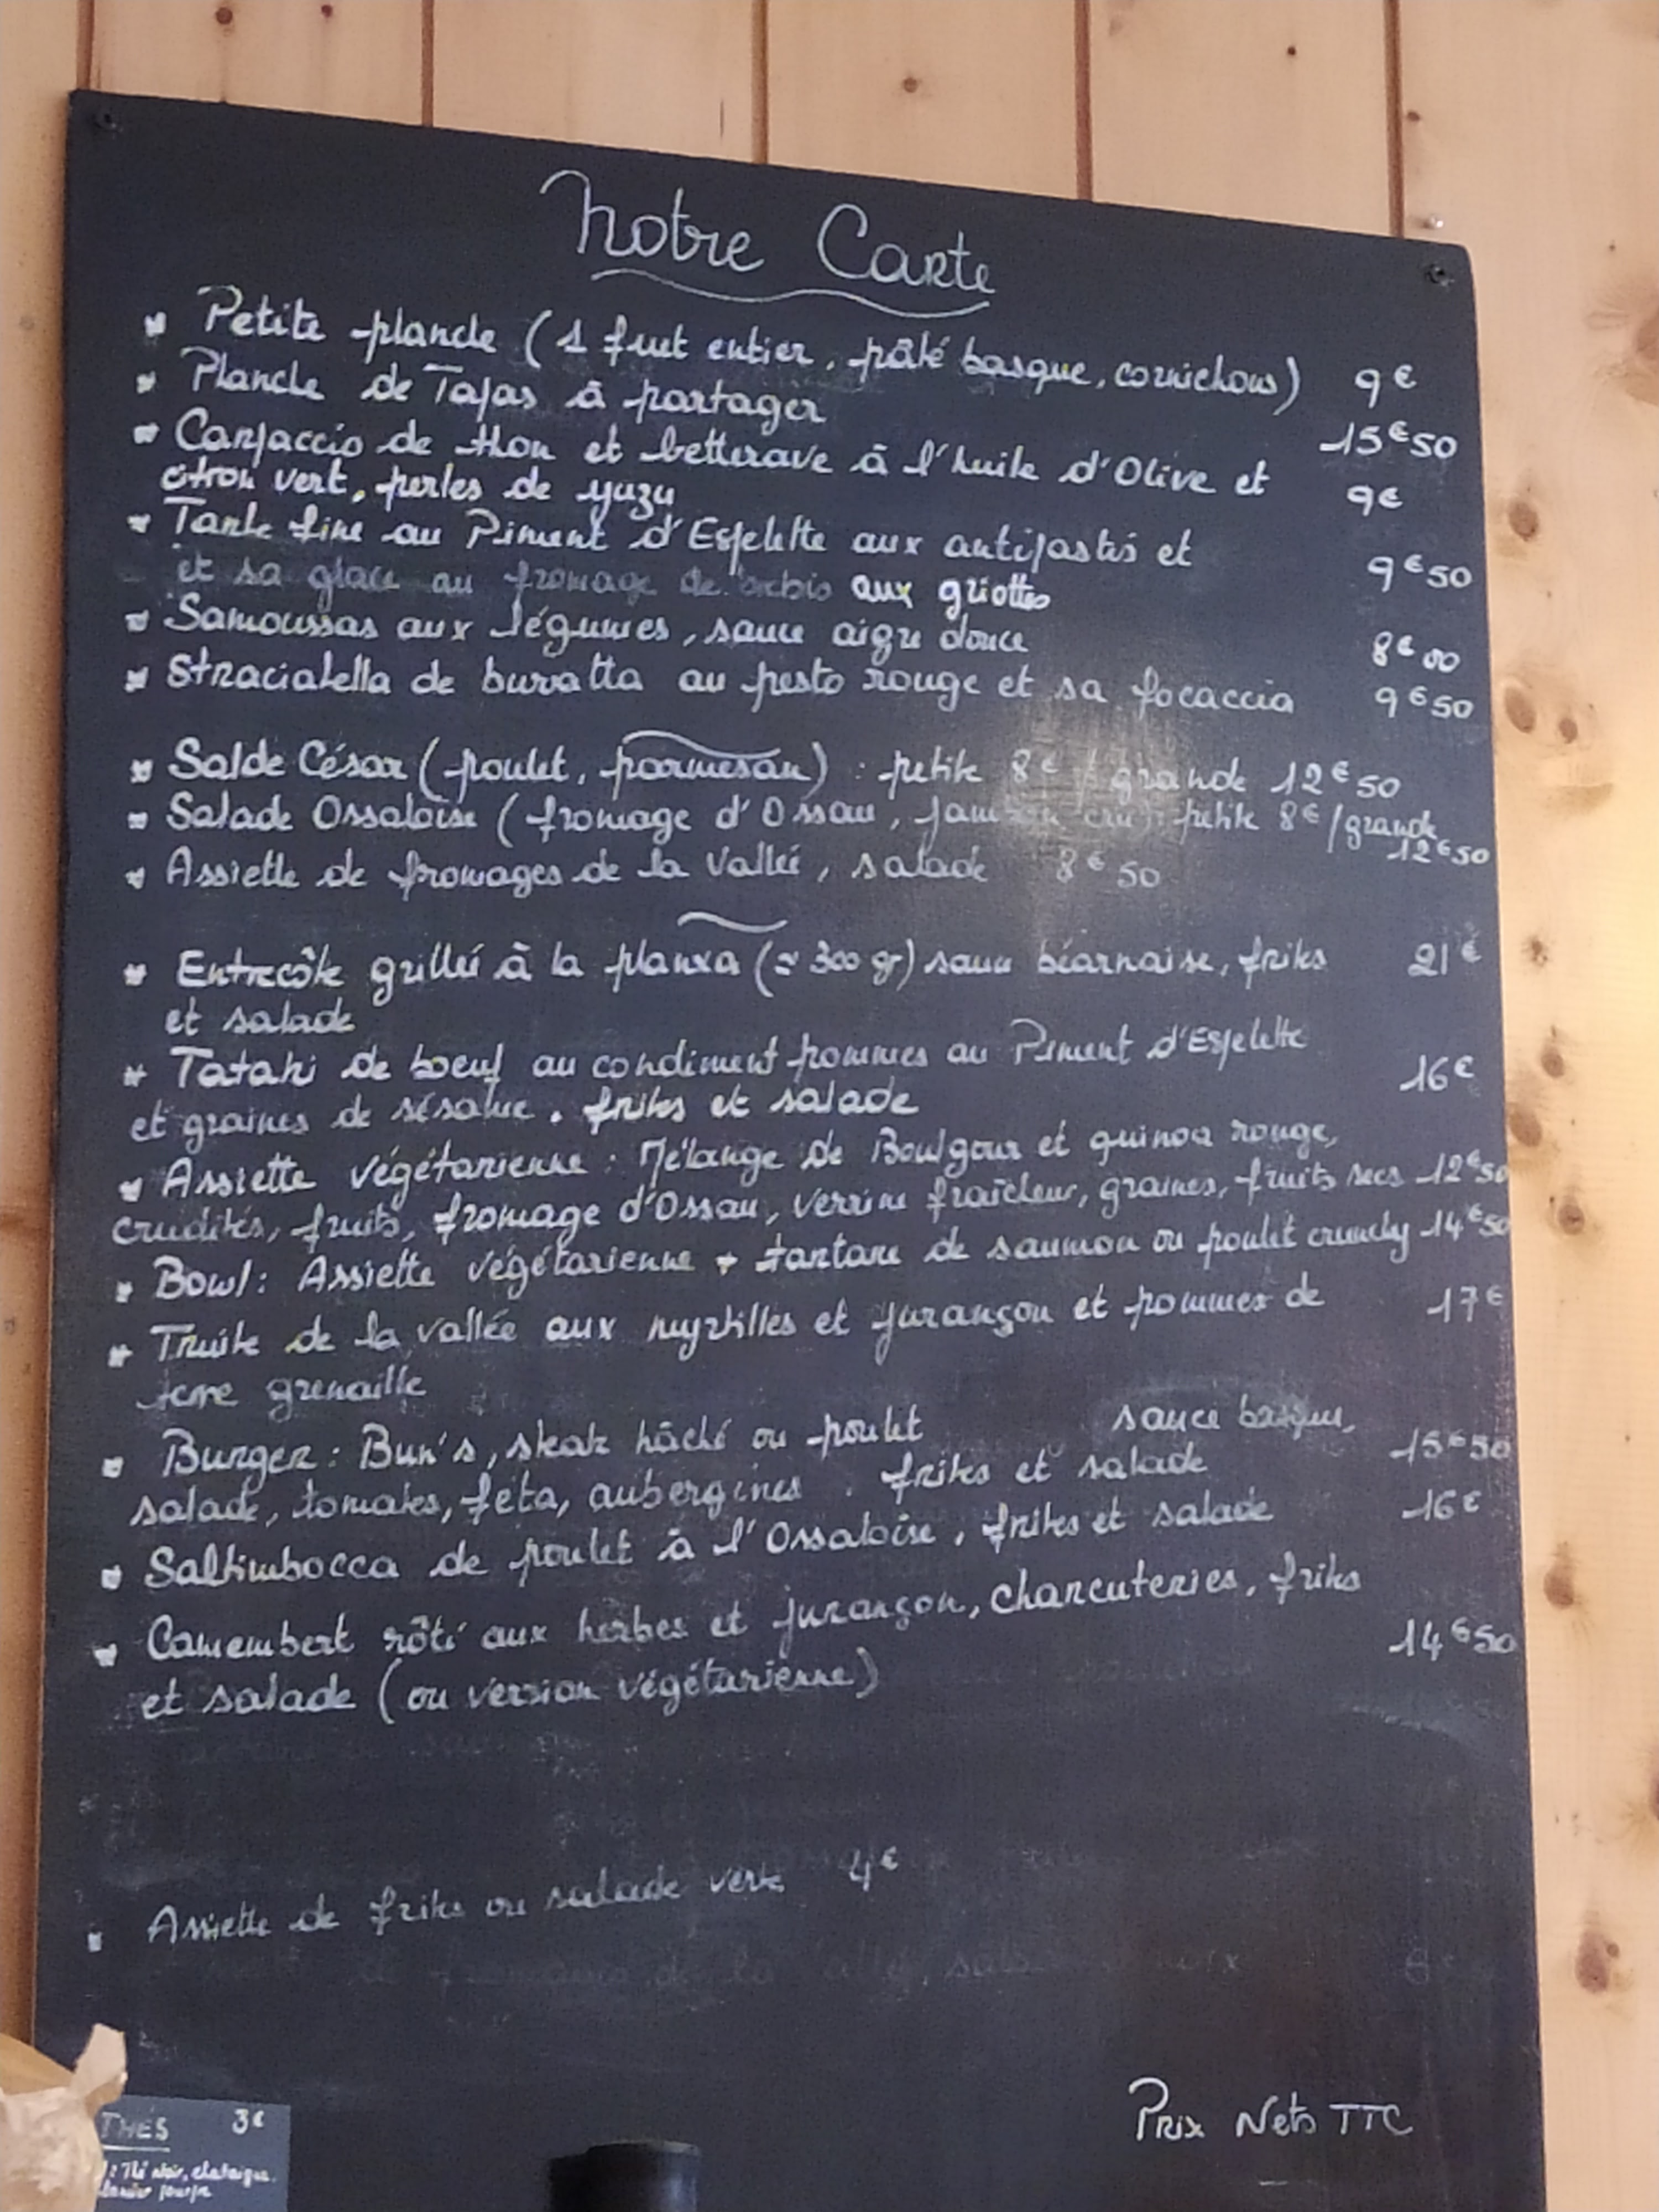 Notre Carte
Petite planche (1 fuet entier, pâté basque, cornichons) 9€
Planche de Tapas à partager 15€50
Carpaccio de thon et betterave à l'huile d'Olive et
citron vert, perles de yuzu 9€
Tarte fine au Piment d'Espelette aux antipastis et
et sa glace au fromage de brebis aux griottes 9€50
Samoussas aux légumes, sauce aigre douce 8€00
Straciatella de buratta au pesto rouge et sa focaccia 9€50
Salde César (poulet, parmesan) : petite 8€ / grande 12€50
Salade Ossaloise (fromage d'Ossau, jambon cru): petite 8€/grande
12€50
Assiette de fromages de la vallée, salade 8€50
Entrecôte grillée à la planxa (≈ 300 gr) sauce béarnaise, frites 21€
et salade
Tataki de boeuf au condiment pommes au Piment d'Espelette
et graines de sésame. frites et salade 16€
Assiette végétarienne : Mélange de Boulgour et quinoa rouge,
crudités, fruits, fromage d'Ossau, verrine fraîcheur, graines, fruits secs 12€50
Bowl: Assiette végétarienne + tartare de saumon ou poulet crunchy 14€50
Truite de la vallée aux myrtilles et jurançon et pommes de 17€
terre grenaille
Burger: Bun's, steak hâché ou poulet sauce basque,
salade, tomates, feta, aubergines. frites et salade 15€50
Saltimbocca de poulet à l'Ossaloise, frites et salade 16€
Camembert rôti aux herbes et jurançon, charcuteries, frites
et salade (ou version végétarienne) 14€50
Assiette de frites ou salade verte 4€
Prix Nets TTC
THÉS 3€
Thé noir,